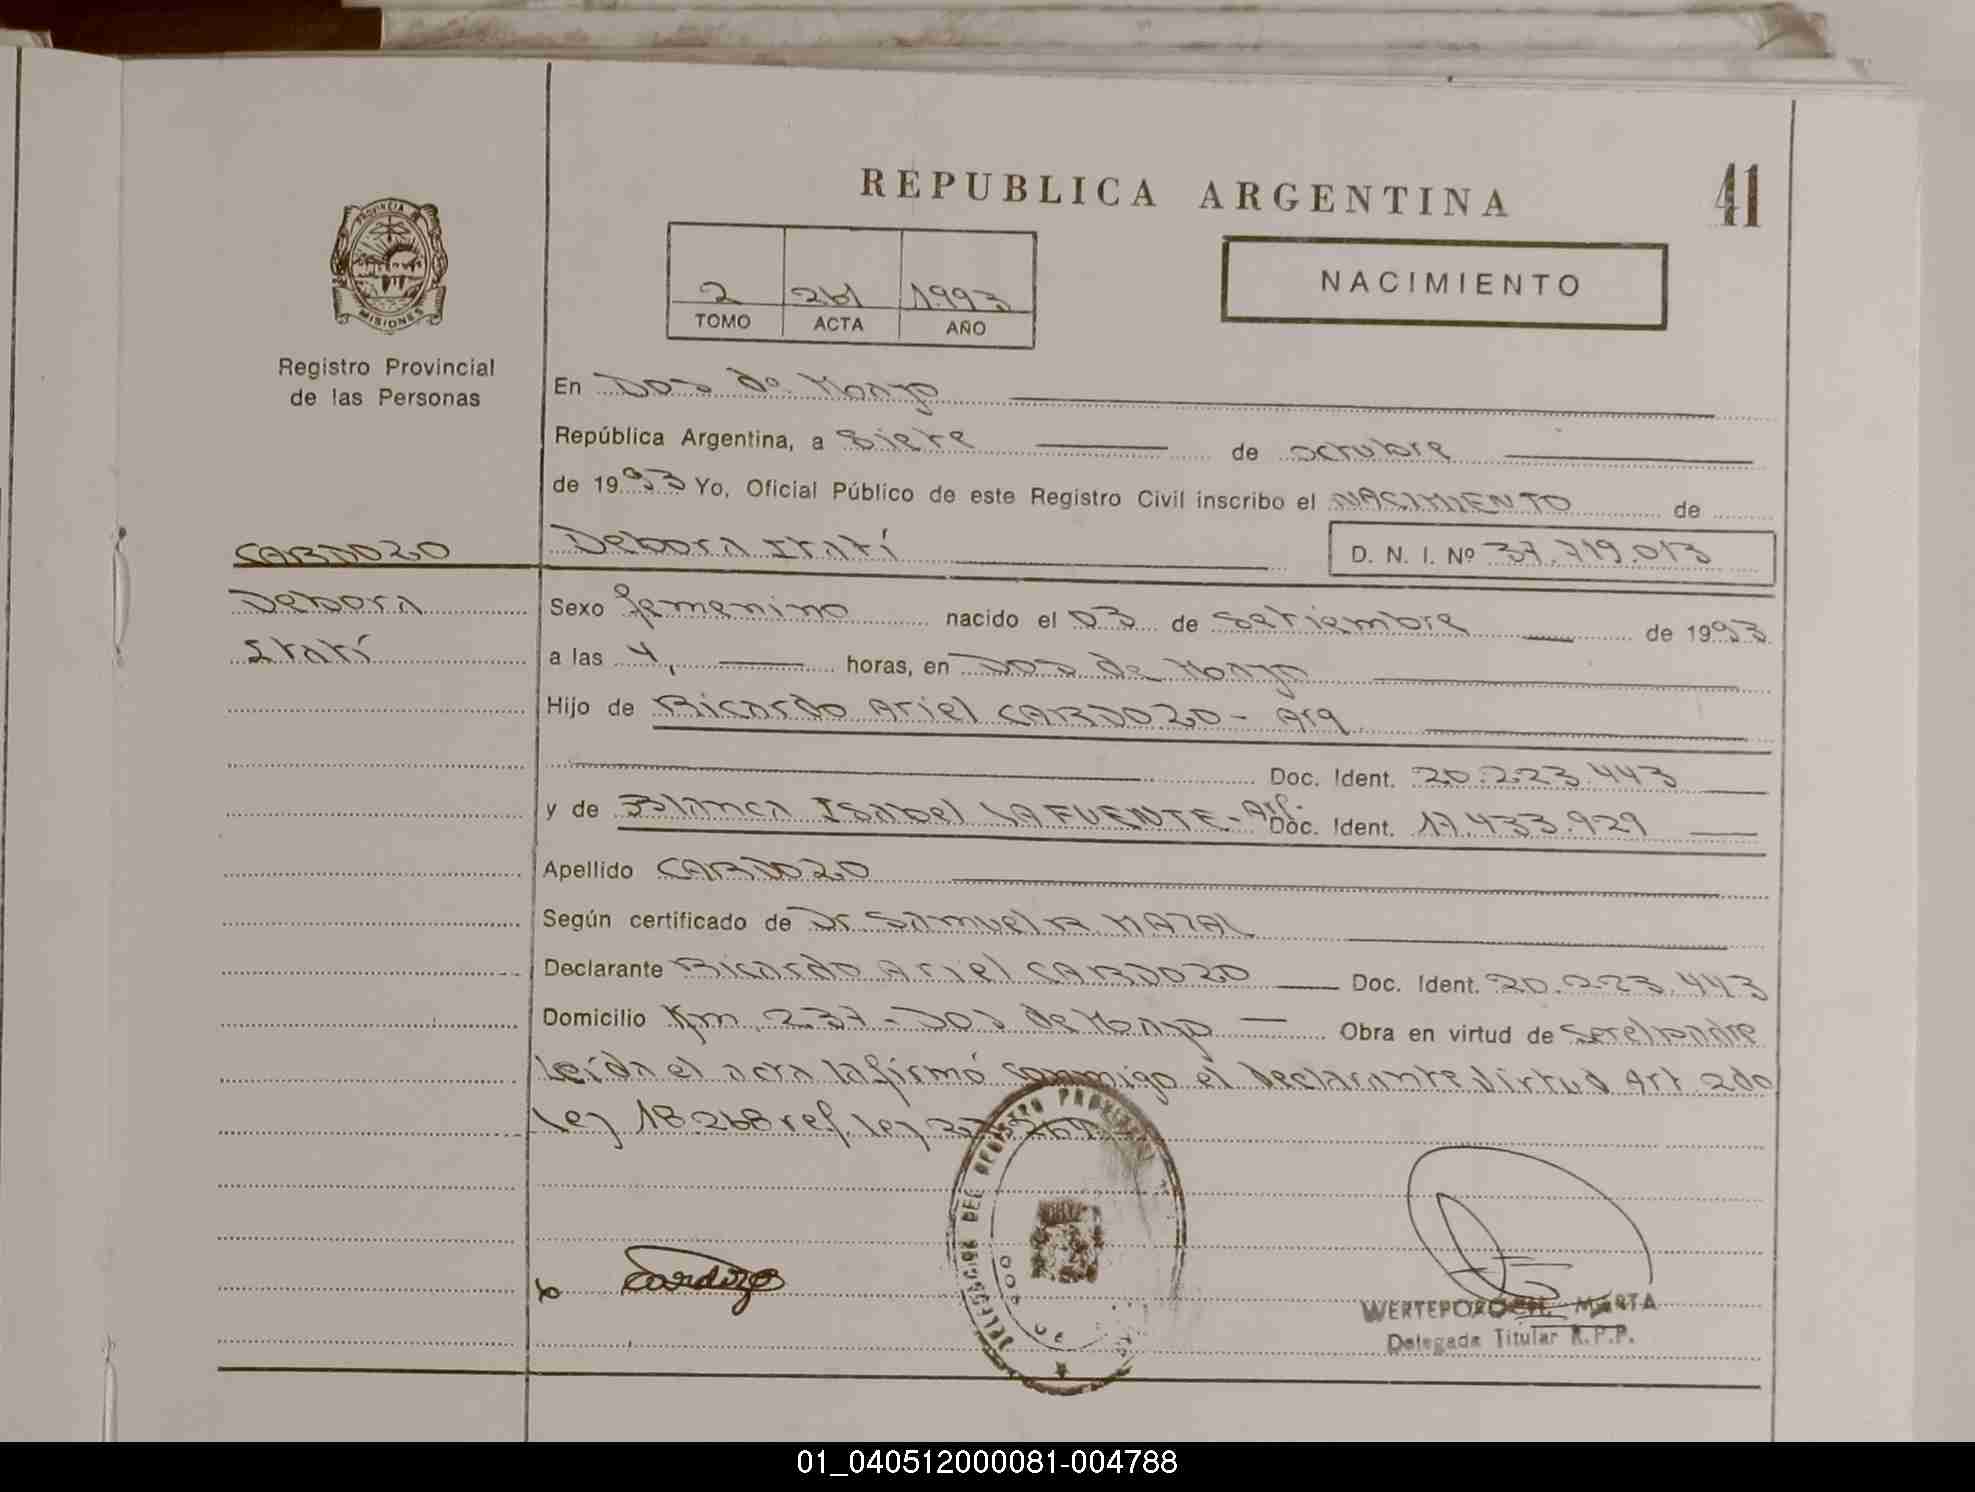 REPUBLICA ARGENTINA
41
PROVINCIA DE
MISIONES
Registro Provincial
de las Personas
2 261 1993
TOMO ACTA AÑO
NACIMIENTO
En Dos de Mayo
República Argentina, a Siete de octubre
de 1993 Yo, Oficial Público de este Registro Civil inscribo el NACIMIENTO de
CARDOZO Debora Itatí D. N. I. Nº 37.719.013
Debora Sexo femenino nacido el 03 de Setiembre de 1993
Itatí a las 4, horas, en Dos de Mayo
Hijo de Ricardo Ariel CARDOZO - Arg
Doc. Ident. 20.223.443
y de Blanca Isabel LAFUENTE - Arg. Doc. Ident. 17.433.929
Apellido CARDOZO
Según certificado de Dr. Samuel R
Declarante Ricardo Ariel CARDOZO Doc. Ident. 20.223.443
Domicilio Km. 237 - Dos de Mayo Obra en virtud de ser el padre
Leída el acta la firmó conmigo el declarante virtud Art. 2do
ley 18.248 ref. ley
DELEGACION DEL REGISTRO PROVINCIAL
DOS DE
Cardozo
MARTA
Delegada Titular R.P.P.
01_040512000081-004788